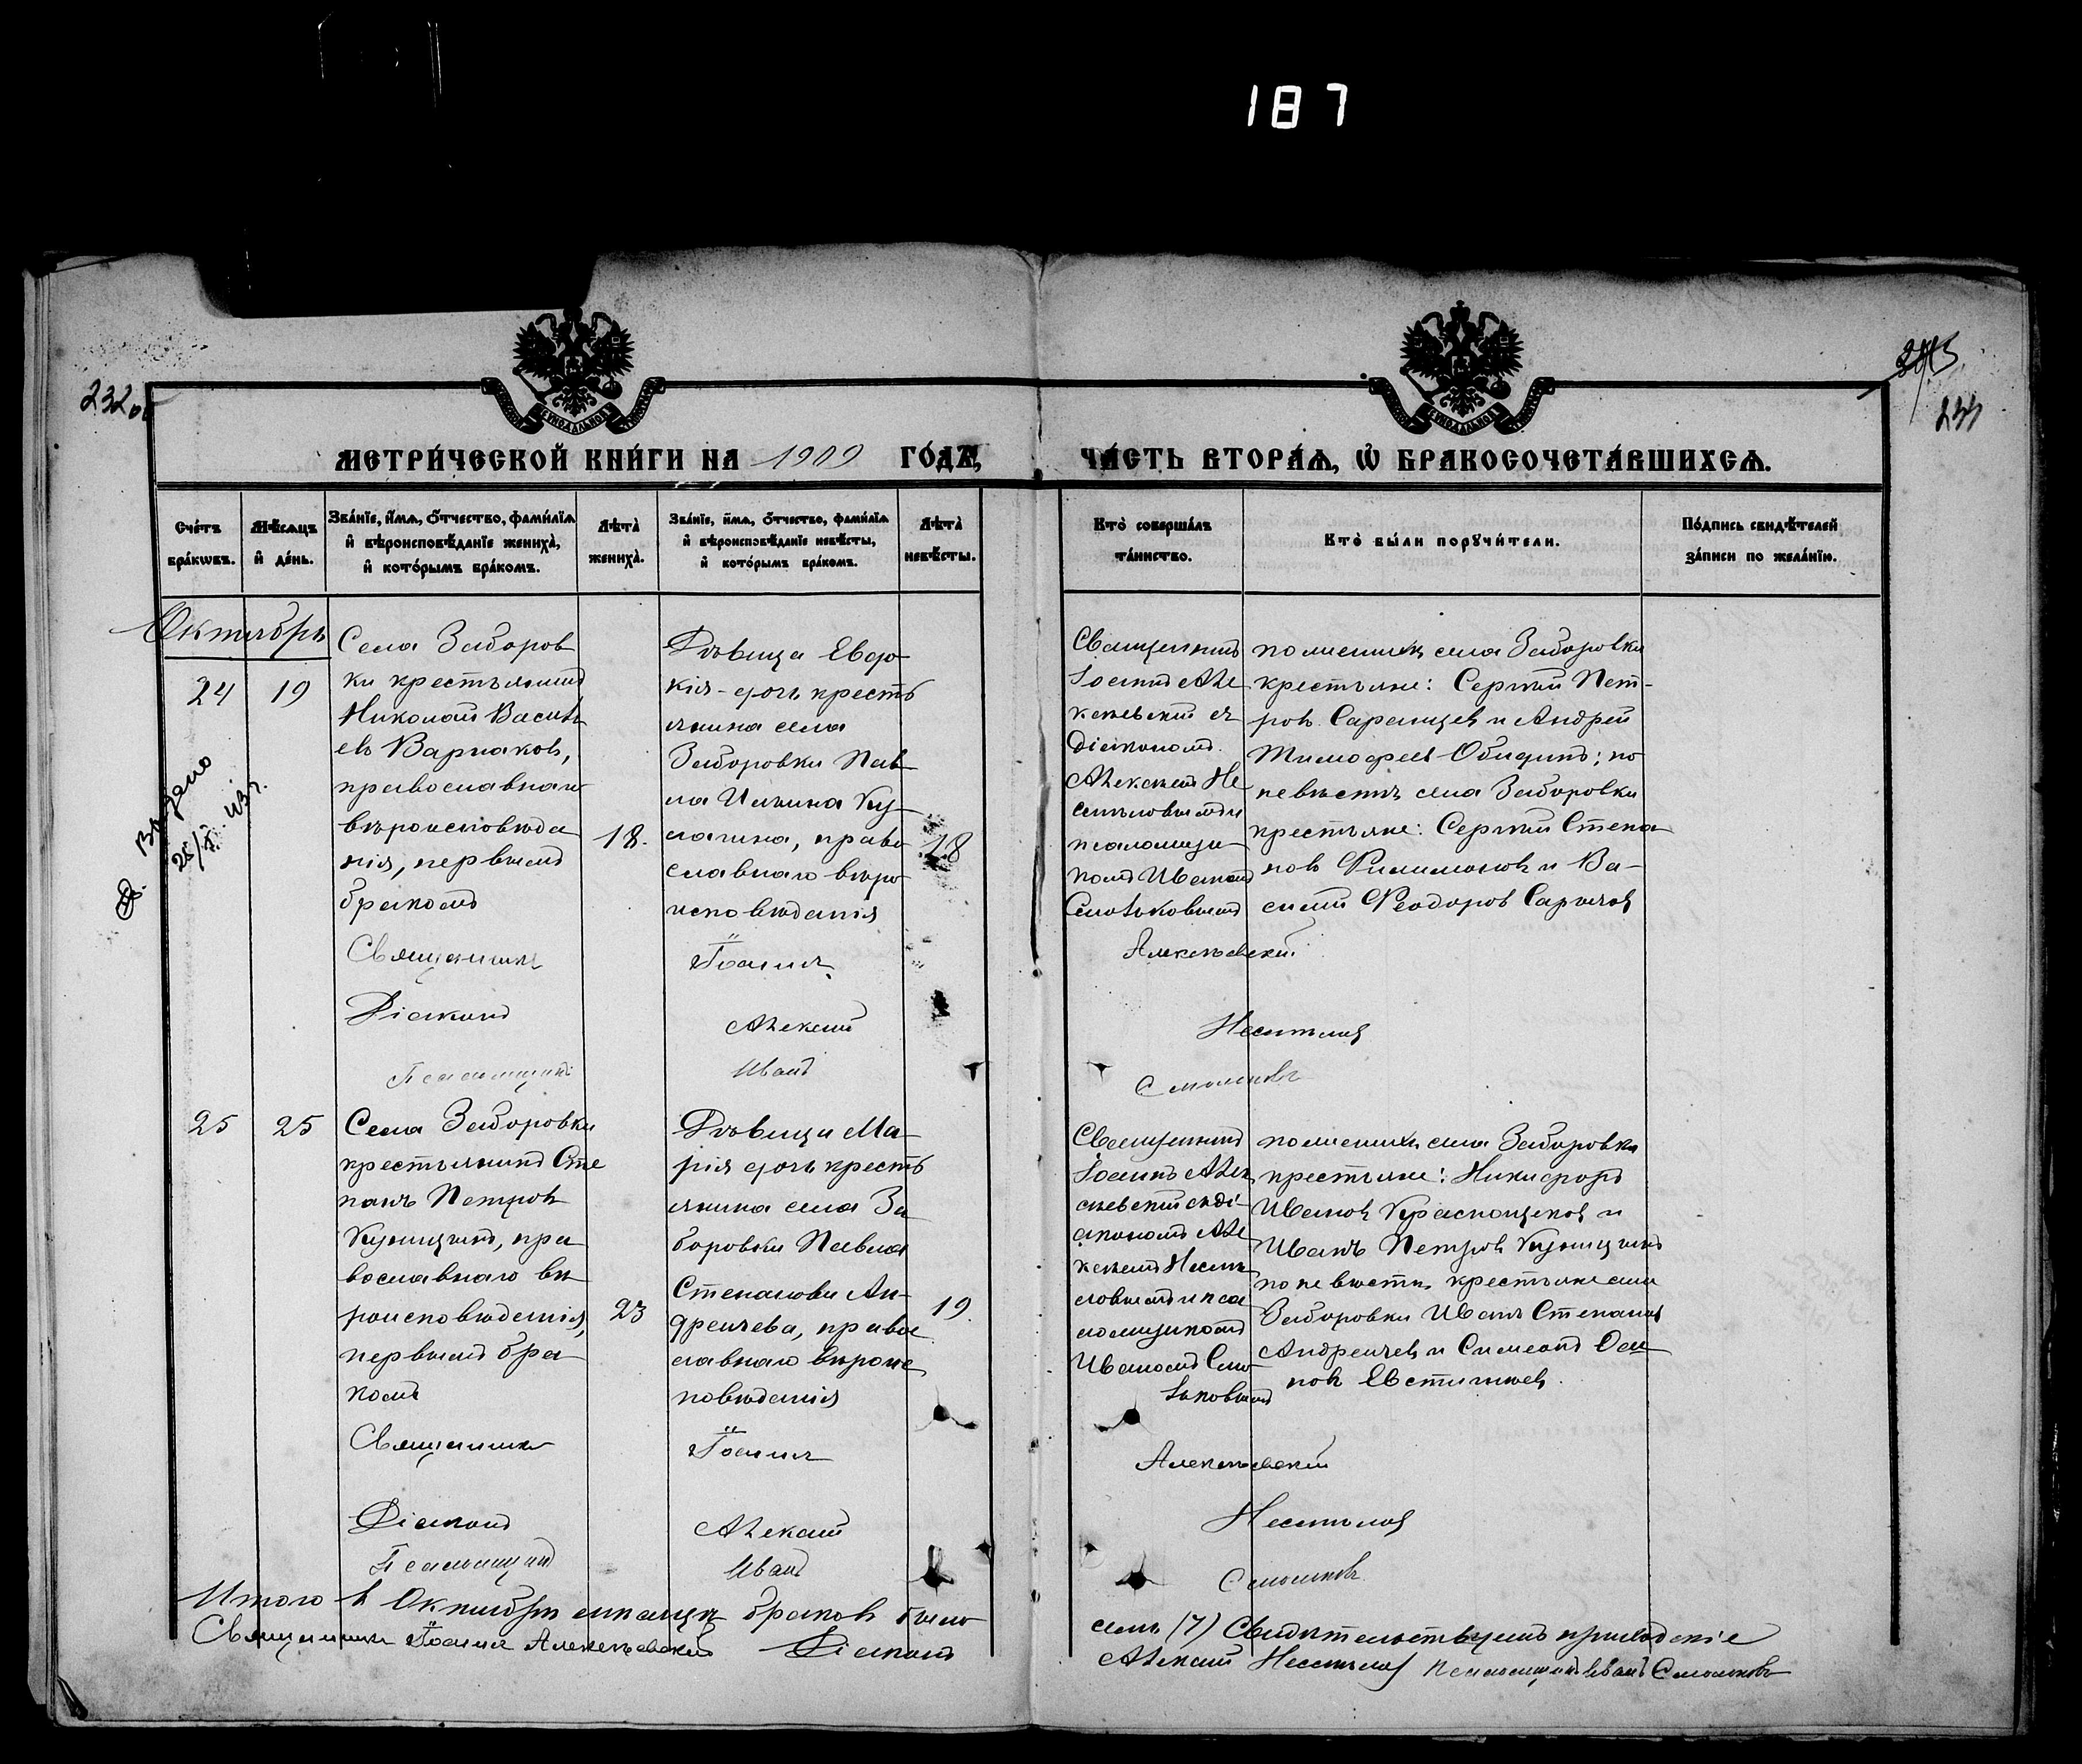 187
232об
233
МЕТРИЧЕСКОЙ КНИГИ НА 1909 ГОДЪ, ЧАСТЬ ВТОРАЯ, Ѡ БРАКОСОЧЕТАВШИХСЯ.
Счетъ браковъ.
Мѣсяцъ и день.
Званіе, имя, отчество, фамилія и вѣроисповѣданіе жениха, и которымъ бракомъ.
Лѣта жениха.
Званіе, имя, отчество, фамилія и вѣроисповѣданіе невѣсты, и которымъ бракомъ.
Лѣта невѣсты.
Кто совершалъ таинство.
Кто были поручители.
Подпись свидѣтелей записи по желанію.
Октябрь
24
19
Села Заборов
ки крестьянинъ
Николай Василь
евъ Варлаковъ,
православнаго
вѣроисповѣда
нія, первымъ
бракомъ
18.
Дѣвица Евдо
кія - дочь кресть
янина села
Заборовки Пав
ла Ильина Ку
лагина, право
славнаго вѣро
исповѣданія
18
Священникъ
Іоаннъ Але
ксѣевскій съ
діакономъ
Алексѣемъ Не
смѣловымъ и
псаломщи
комъ Иваномъ
Смольковымъ
по женихѣ села Заборовки
крестьяне: Сергѣй Пет-
ровъ Саранцевъ и Андрей
Тимофеевъ Обидинъ; по
невѣстѣ села Заборовки
крестьяне: Сергѣй Степа
новъ Филимоновъ и Ва-
силій Ѳеодоровъ Сарычевъ
Выдано
Священникъ Іоаннъ Алексѣевскій
Діаконъ Алексѣй Несмѣловъ
Псаломщикъ Иванъ Смольковъ
25
25
Села Заборовки
крестьянинъ Сте
панъ Петровъ
Куницынъ, пра
вославнаго вѣ
роисповѣданія,
первымъ бра
комъ
23
Дѣвица Ма
рія дочь кресть
янина села За
боровки Павла
Степанова Ан-
дреичева, правос
лавнаго вѣроис
повѣданія
19.
Священникъ
Іоаннъ Алек
сѣевскій съ ді-
акономъ Але
ксѣемъ Несмѣ
ловымъ и пса
ломщикомъ
Иваномъ Смо
льковымъ
по женихѣ села Заборовки
крестьяне: Никифоръ
Ивановъ Краснощековъ и
Иванъ Петровъ Куницынъ
по невѣстѣ крестьяне села
Заборовки Иванъ Степановъ
Андреичевъ и Симеонъ
Евстигнеевъ.
Священникъ Іоаннъ Алексѣевскій
Діаконъ Алексѣй Несмѣловъ
Псаломщикъ Иванъ Смольковъ
Итого въ Октябрѣ мѣсяцѣ браковъ было семь (7) Свидѣтельствуемъ
Священникъ Іоаннъ Алексѣевскій Діаконъ Алексѣй Несмѣловъ Псаломщикъ Иванъ Смольковъ